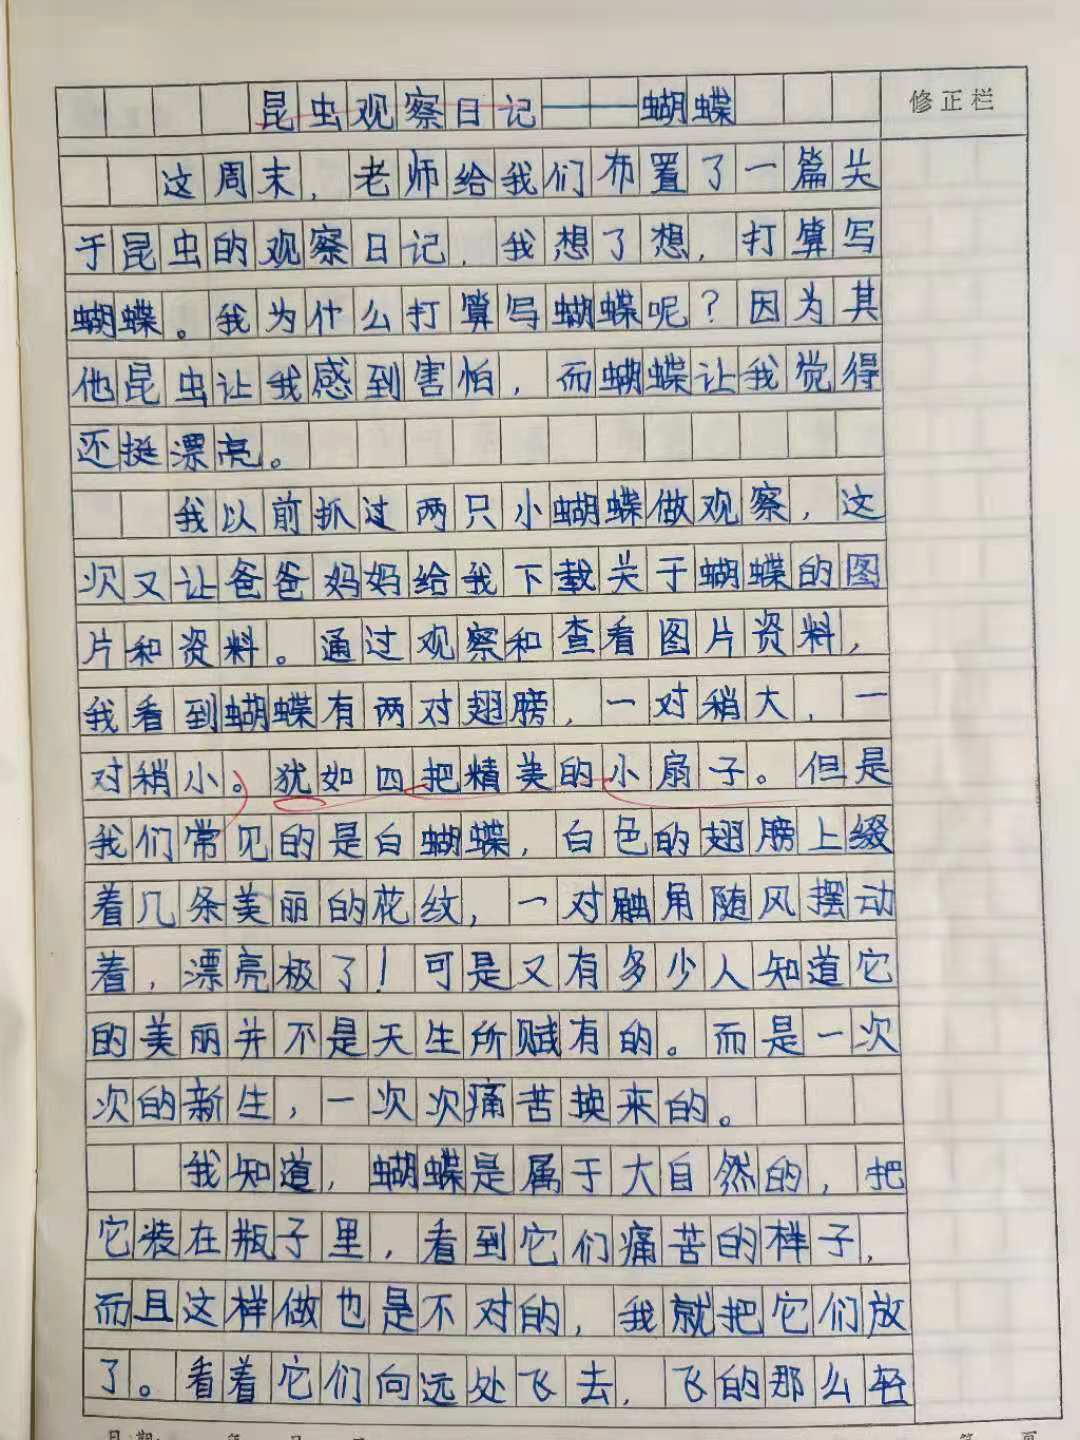 昆虫观察日记——蝴蝶
修正栏
这周末，老师给我们布置了一篇关
于昆虫的观察日记，我想了想，打算写
蝴蝶。我为什么打算写蝴蝶呢？因为其
他昆虫让我感到害怕，而蝴蝶让我觉得
还挺漂亮。
我以前抓过两只小蝴蝶做观察，这
次又让爸爸妈妈给我下载关于蝴蝶的图
片和资料。通过观察和查看图片资料，
我看到蝴蝶有两对翅膀，一对稍大，一
对稍小。犹如四把精美的小扇子。但是
我们常见的是白蝴蝶，白色的翅膀上缀
着几条美丽的花纹，一对触角随风摆动
着，漂亮极了！可是又有多少人知道它
的美丽并不是天生所赋有的。而是一次
次的新生，一次次痛苦换来的。
我知道，蝴蝶是属于大自然的，把
它装在瓶子里，看到它们痛苦的样子，
而且这样做也是不对的，我就把它们放
了。看着它们向远处飞去，飞的那么轻